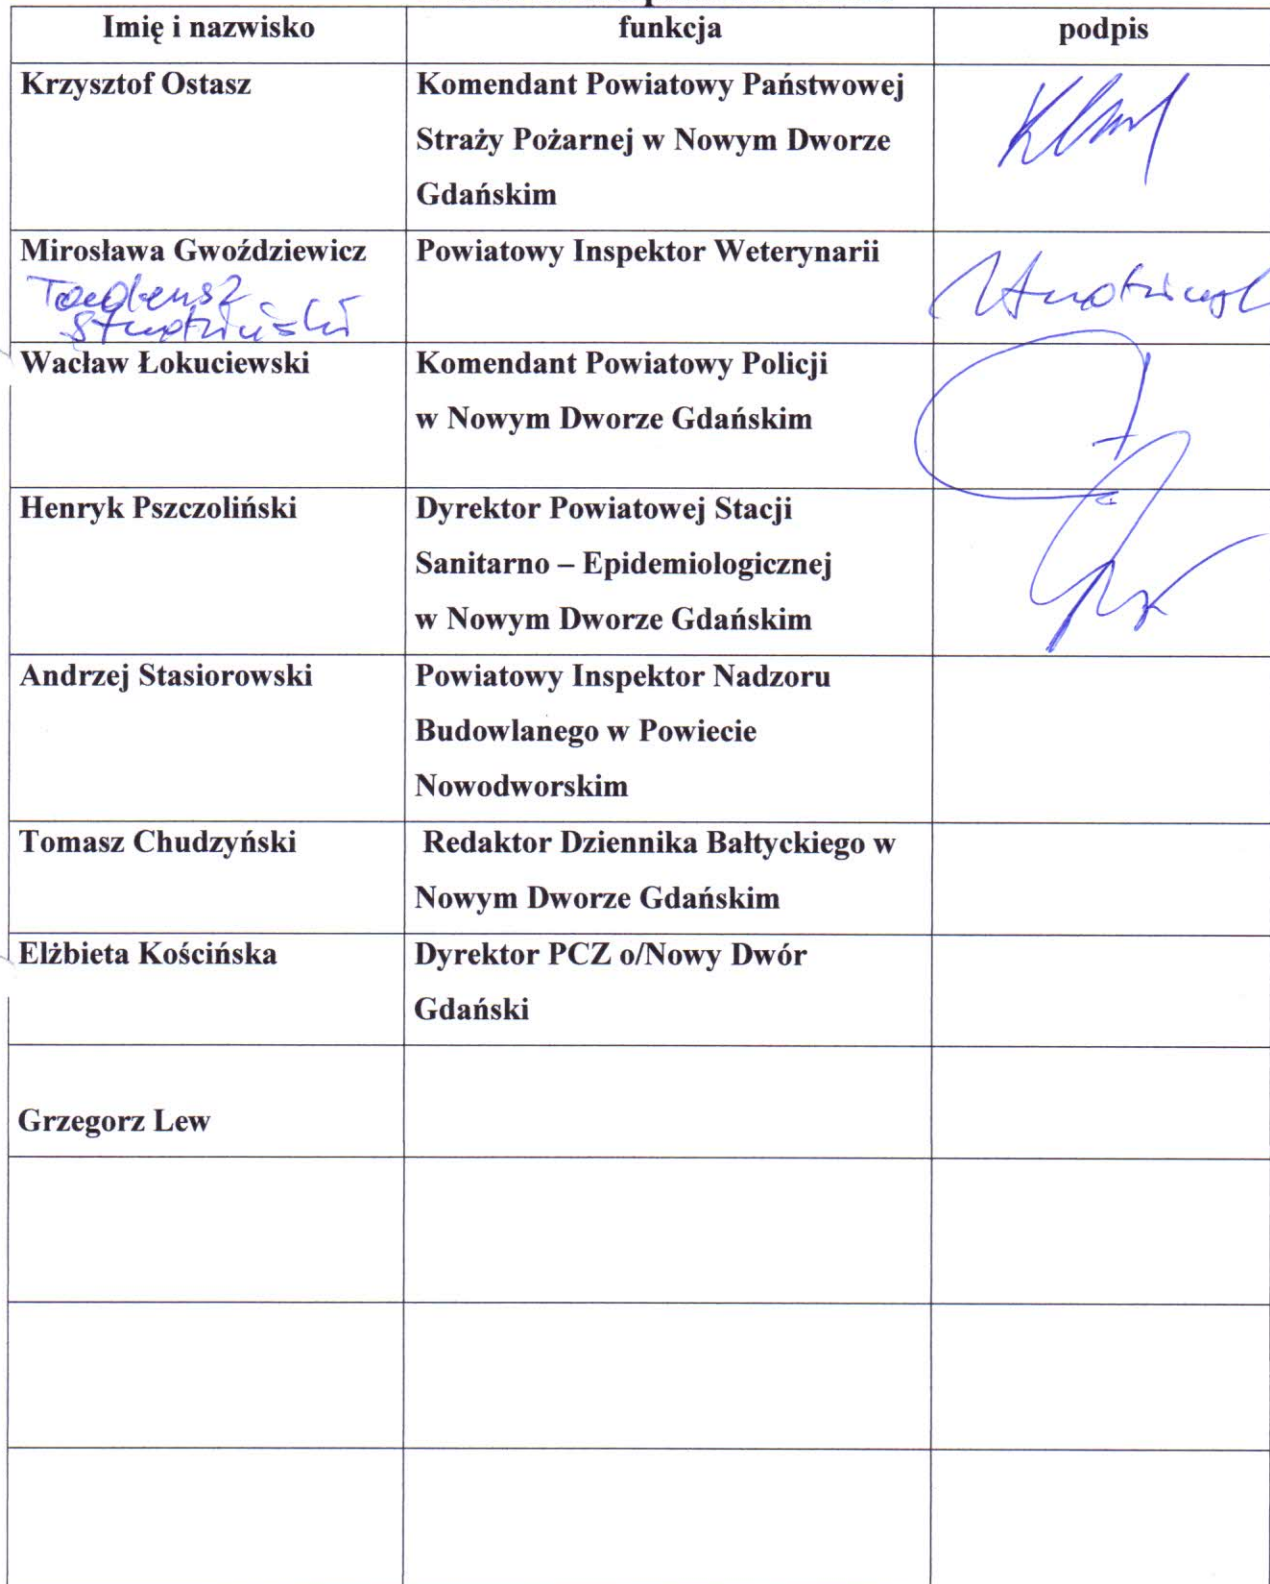 Imię i nazwisko funkcja podpis
Krzysztof Ostasz Komendant Powiatowy Państwowej
Straży Pożarnej w Nowym Dworze
Gdańskim
Mirosława Gwoździewicz Powiatowy Inspektor Weterynarii
Tadeusz
Wacław Łokuciewski Komendant Powiatowy Policji
w Nowym Dworze Gdańskim
Henryk Pszczoliński Dyrektor Powiatowej Stacji
Sanitarno – Epidemiologicznej
w Nowym Dworze Gdańskim
Andrzej Stasiorowski Powiatowy Inspektor Nadzoru
Budowlanego w Powiecie
Nowodworskim
Tomasz Chudzyński Redaktor Dziennika Bałtyckiego w
Nowym Dworze Gdańskim
Elżbieta Kościńska Dyrektor PCZ o/Nowy Dwór
Gdański
Grzegorz Lew